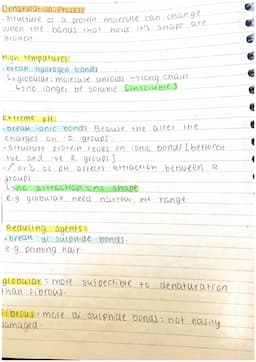 Denaturation Process
• structure of a protein molecule can change
when the bonds that hold it's shape are
broken
High tempatures
• break hydrogen bonds
↳ globular: molecule unfolds → long chain
↳ no longer be soluble [insoluble]
Extreme pH:
• break ionic bonds Because the alter the
charges on 'R groups'
• structure protein relies on ionic bonds [between
+ve and -ve R groups]
• ↑ or ↓ of pH affects attraction between R
groups
↳ no attraction = no shape
e.g. globular need narrow pH range
Reducing agents=
• break di sulphide bonds.
e.g. perming hair
globular = more suspectible to denaturation
than fibrous.
Fibrous = more di sulphide bonds = not easily
damaged